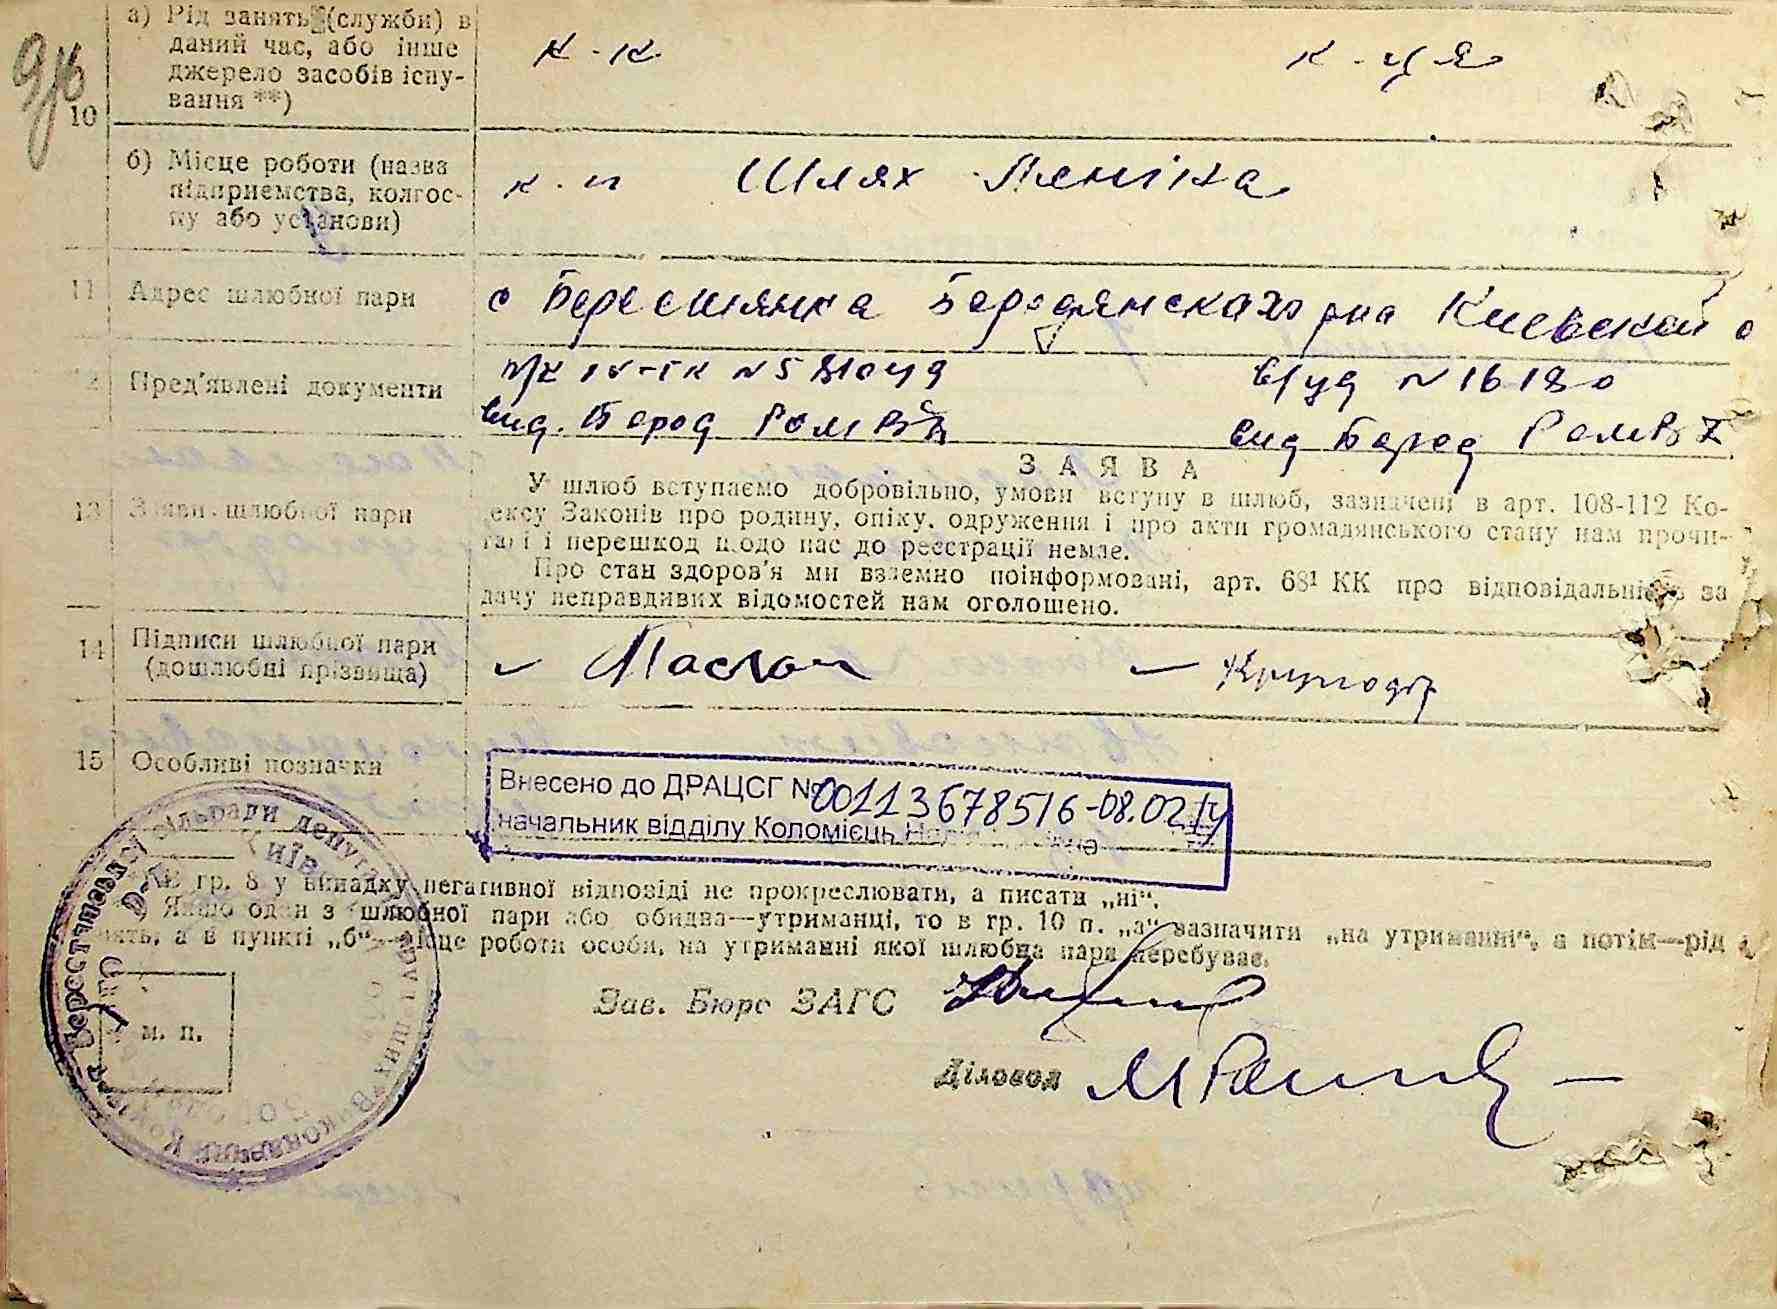 а) Рід занять (служби) в
даний час, або інше
джерело засобів існу-
вання **)
10
к-к.
к-ця
б) Місце роботи (назва
підприємства, колгос-
пу або установи)
к-п Шлях Леніна
11 Адрес шлюбної пари
с Берестянка Бородянского рна Киевской о
12 Пред'явлені документи
вид. Бород РОМВД
в/уд №16180
вид Бород РОМВД
З А Я В А
13 Заяви шлюбної пари
У шлюб вступаємо добровільно, умови вступу в шлюб, зазначені в арт. 108-112 Ко-
дексу Законів про родину, опіку, одруження і про акти громадянського стану нам прочи-
тані і перешкод щодо нас до реєстрації немає.
Про стан здоров'я ми взаємно поінформовані, арт. 68¹ КК про відповідальність за
дачу неправдивих відомостей нам оголошено.
14 Підписи шлюбної пари
(дошлюбні прізвища)
Маслон
15 Особливі позначки
Внесено до ДРАЦСГ № 00113678516-08.02.14
начальник відділу Коломієць
*) В гр. 8 у випадку негативної відповіді не прокреслювати, а писати „ні“.
**) Якщо один з шлюбної пари або обидва—утриманці, то в гр. 10 п. „а“ зазначити „на утриманні“, а потім—рід
занять, а в пункті „б“—місце роботи особи, на утриманні якої шлюбна пара перебуває.
Зав. Бюро ЗАГС
м. п.
Діловод